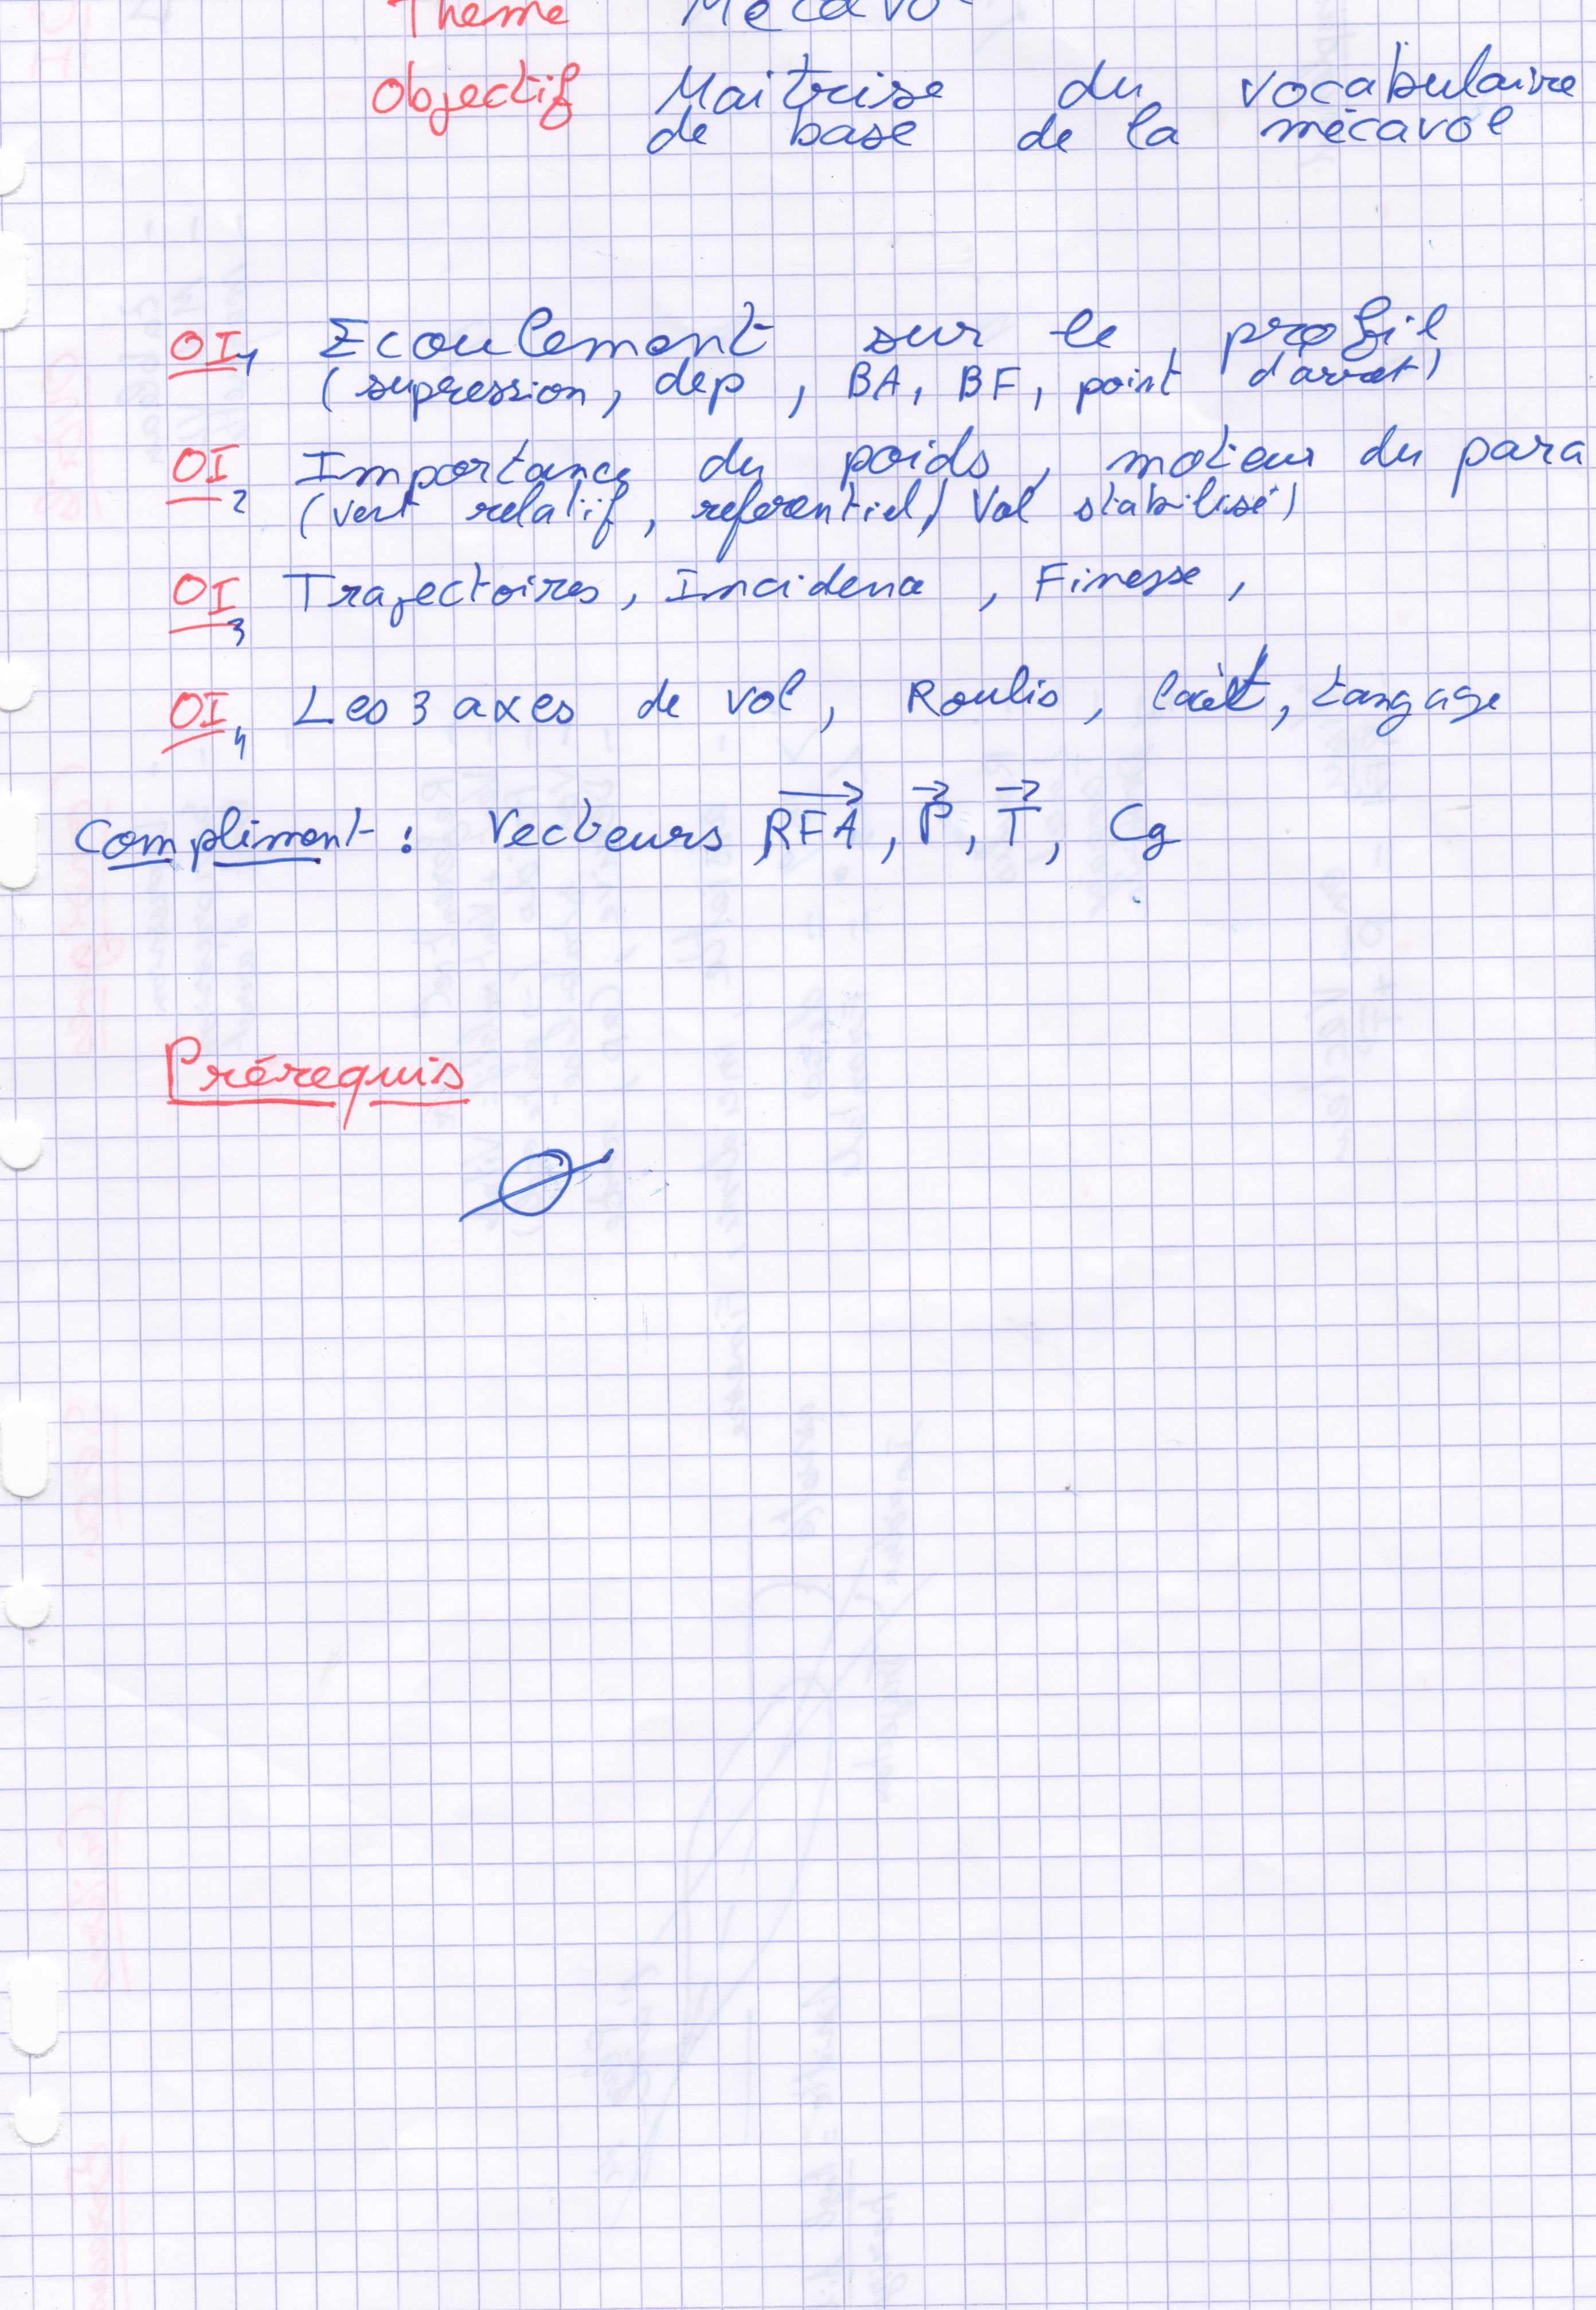 Thème Mécavo
Objectif Maitrise du vocabulaire
de base de la mécavol
OI1 Ecoulement sur le profil
(supression, dep, BA, BF, point d'arret)
OI2 Importance du poids, moteur du para
(vent relatif, referentiel, Vol stabilisé)
OI3 Trajectoires, Incidence, Finesse,
OI4 Les 3 axes de vol, Roulis, lacet, tangage
Compliment : Vecteurs RFA, P, T, Cg
Prérequis
Ø